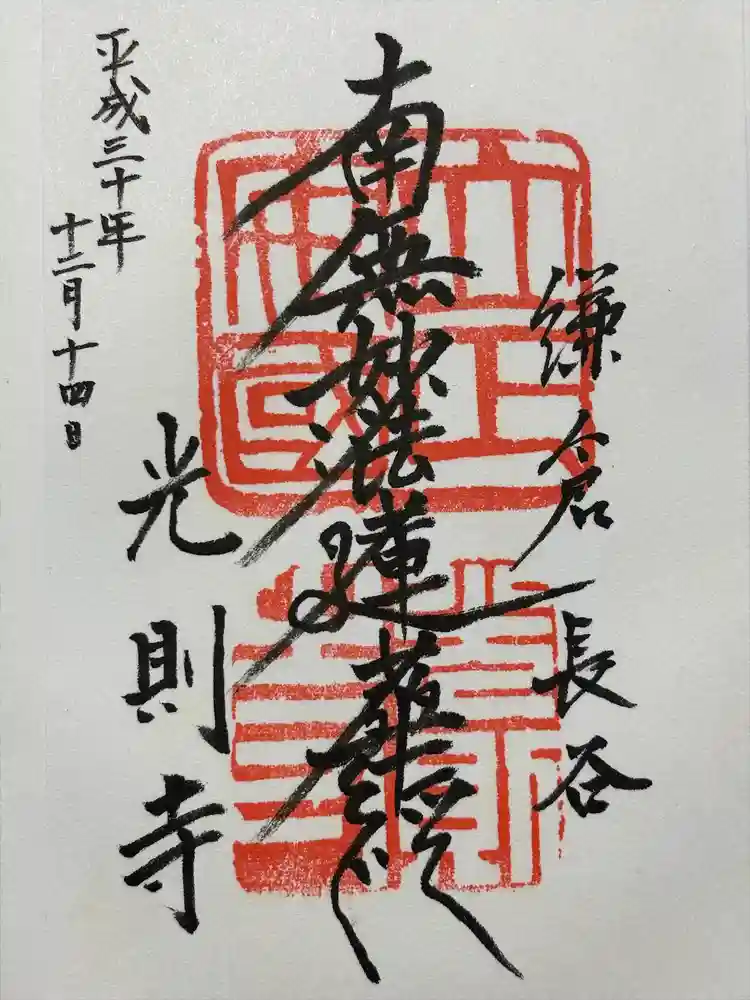 鎌倉長谷
南無妙法蓮華経
光則寺
平成三十年
十二月十四日
立正
安国